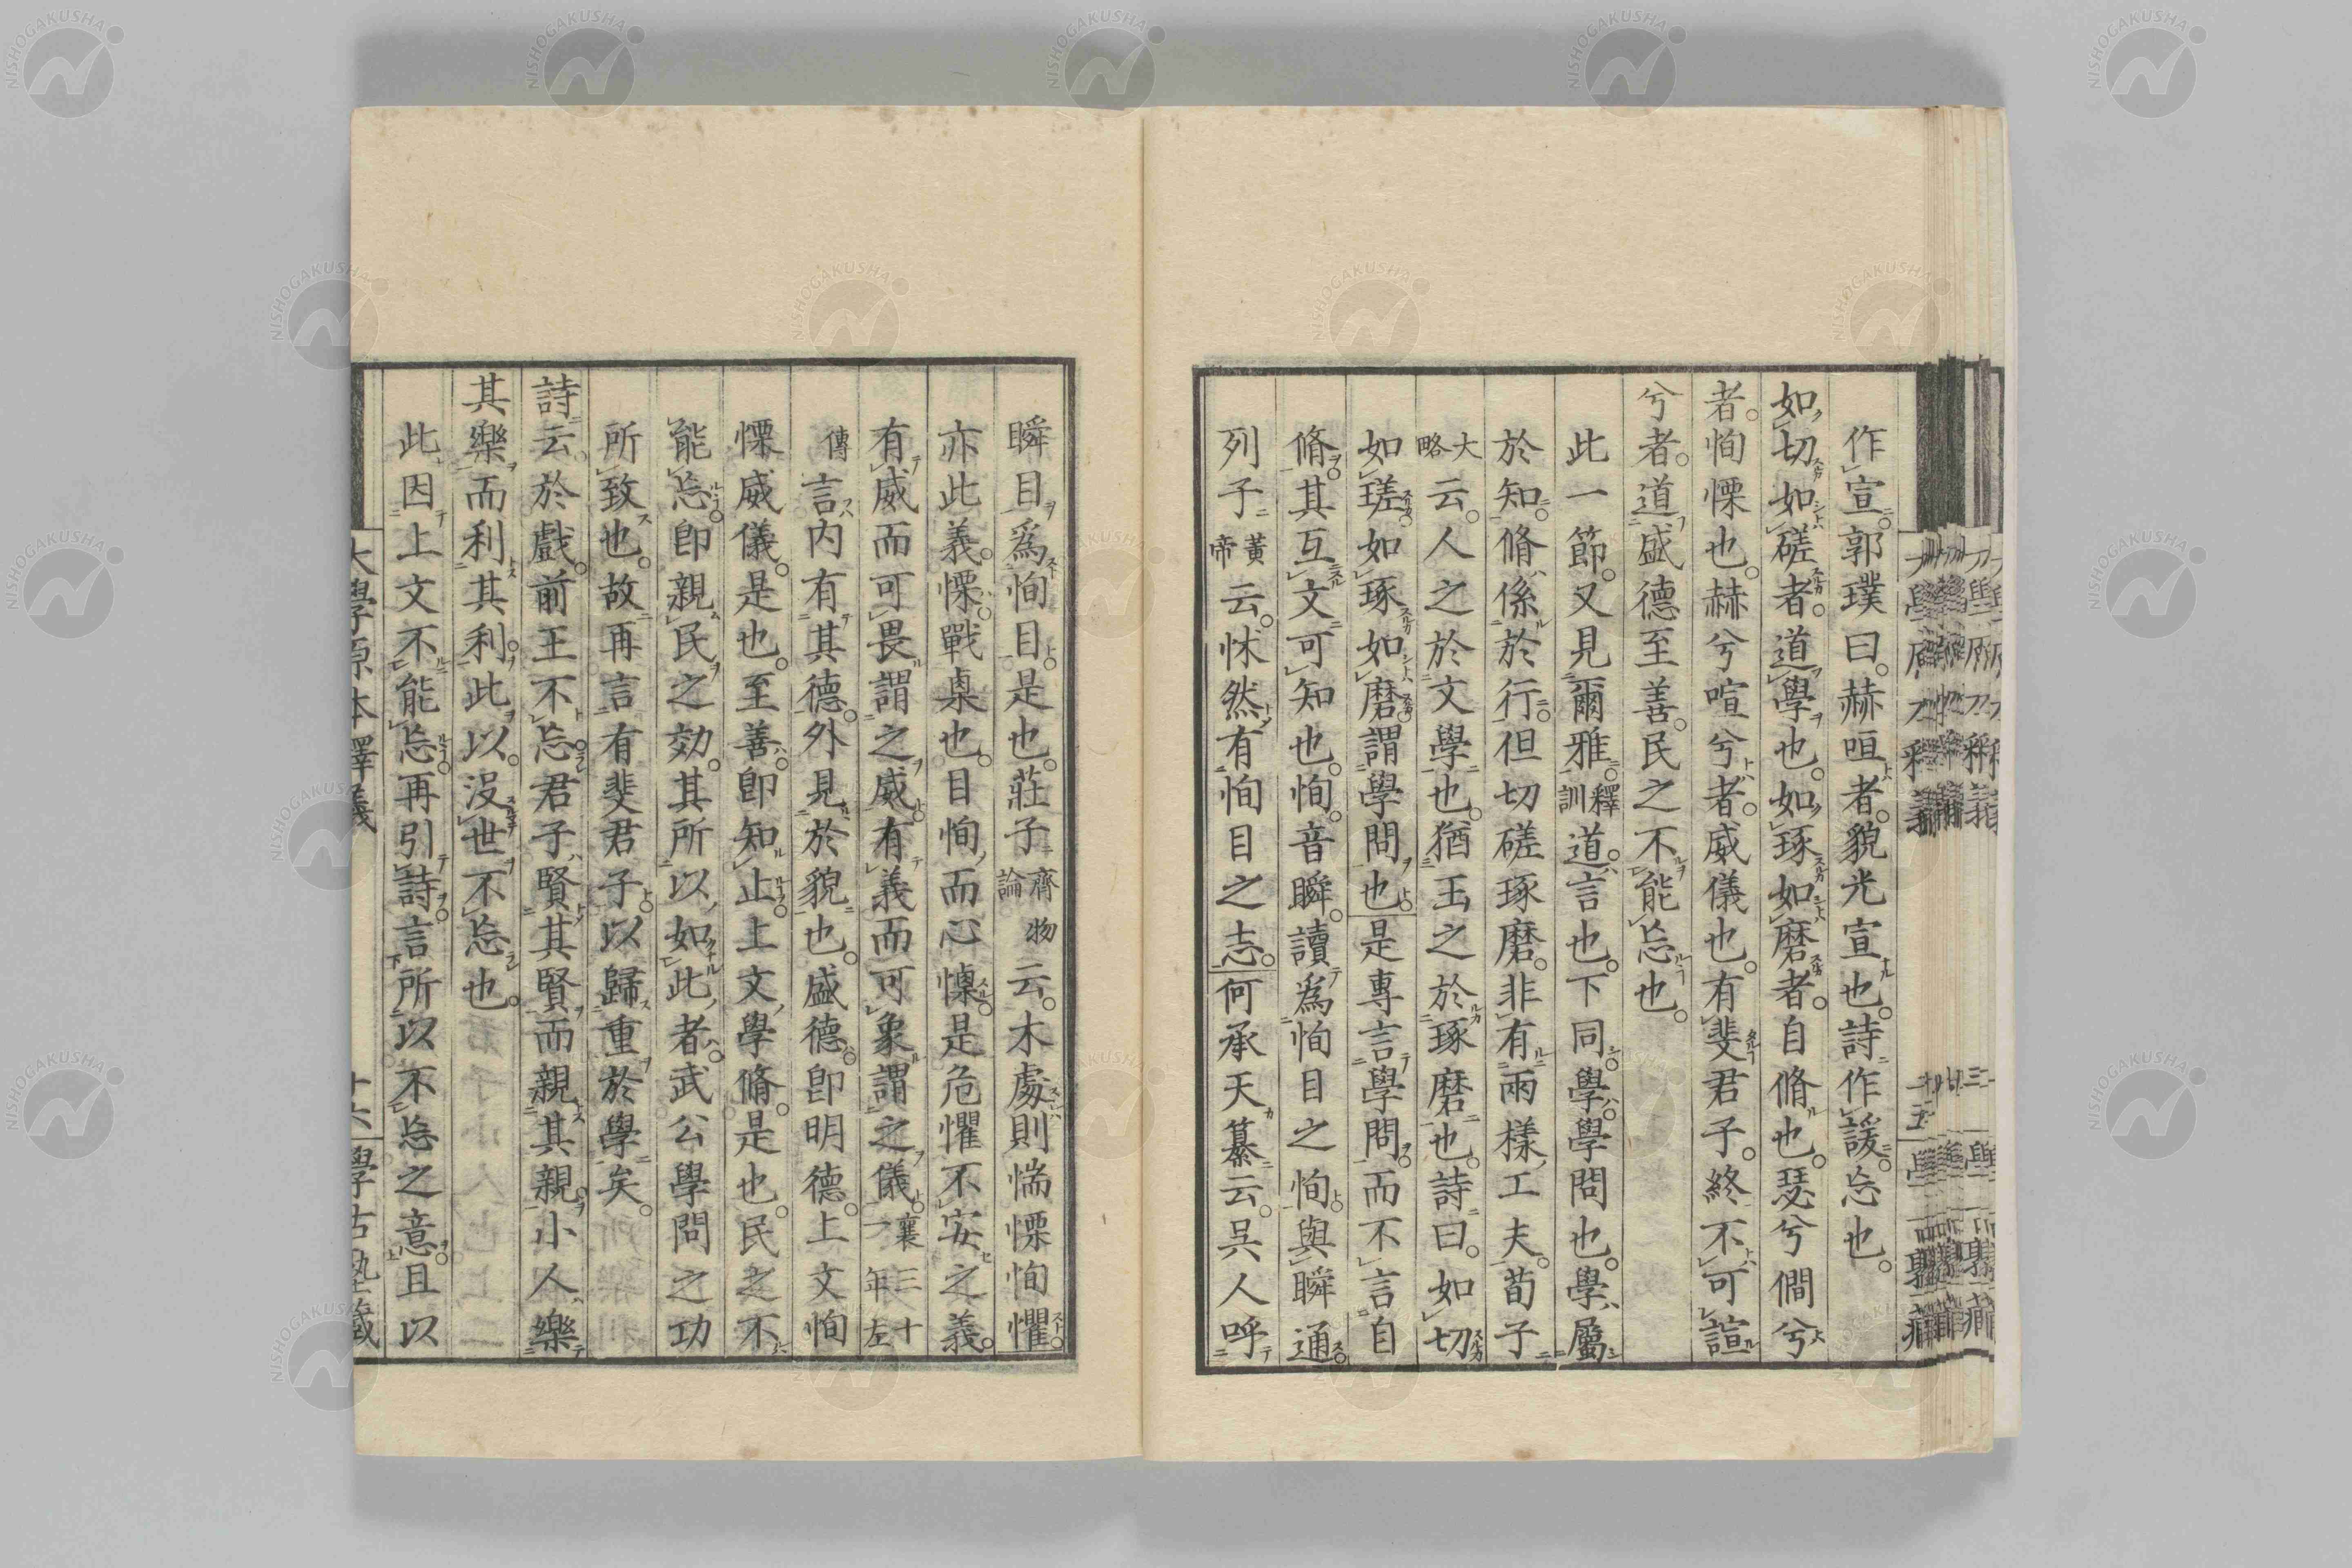 作宣。郭璞曰。赫咺者。貌光宣也。詩作諼。忘也。
如切如磋者。道學也。如琢如磨者。自脩也。瑟兮僩兮
者。恂慄也。赫兮喧兮者。威儀也。有斐君子。終不可諠
兮者。道盛德至善。民之不能忘也。
此一節。又見爾雅。釋訓道。言也。下同。學。學問也。學屬
於知。脩係於行。但切磋琢磨。非有兩樣工夫。荀子
大略云。人之於文學也。猶玉之於琢磨也。詩曰。如切
如瑳。如琢如磨。謂學問也。是專言學問。而不言自
脩。其互文可知也。恂。音瞬。讀爲恂目之恂。與瞬通。
列子黃帝云。怵然有恂目之志。何承天纂云。吳人呼
瞬目爲恂目。是也。莊子齊物論云。木處則惴慄恂懼。
亦此義。慄。戰桌也。目恂而心懍。是危懼不安之義。
有威而可畏。謂之威。有義而可象。謂之儀。襄三十一年左
傳言内有其德。外見於貌也。盛德。卽明德。上文恂
慄威儀。是也。至善。卽知止上文學脩。是也。民之不
能忘。卽親民之効。其所以如此者。武公學問之功
所致也。故再言有斐君子。以歸重於學矣。
詩云。於戲前王不忘。君子賢其賢。而親其親。小人樂
其樂。而利其利。此以。沒世不忘也。
此因上文不能忘。再引詩。言所以不忘之意。且以
大學原本釋義
十六
學古塾藏